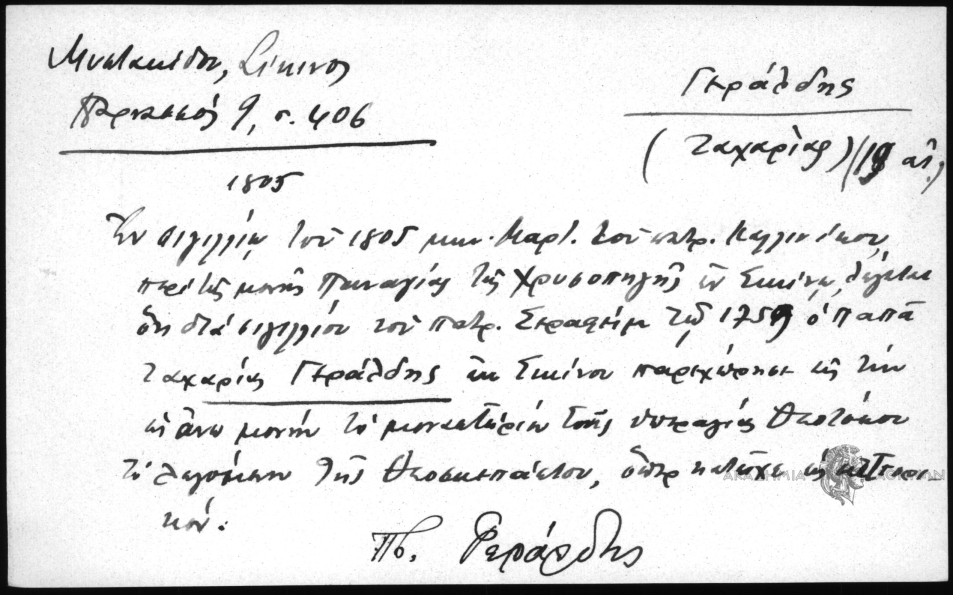 Μηλιαράκη, Σίκινος
Παρνασσός 9, σ. 406
Γεράλδης
(Ζαχαρίας) (18 αἰ.)
1805
Ἐν σιγιλλίῳ τοῦ 1805 μην. Μαρτ. τοῦ πατρ. Καλλινίκου,
περὶ τῆς μονῆς Παναγίας τῆς Χρυσοπηγῆς ἐν Σικίνῳ, λέγεται
ὅτι διὰ σιγιλλίου τοῦ πατρ. Σεραφεὶμ τῷ 1759 ὁ παπᾶ
Ζαχαρίας Γεράλδης ἐκ Σικίνου παρεχώρησε εἰς τὴν
ὡς ἄνω μονὴν τὸ μοναστήριον τῆς ὑπεραγίας Θεοτόκου
τὸ λεγόμενον τῆς Θεοσκεπάστου, ὅπερ κατεῖχε ὡς κτιτορι
κόν.
Πβ. Γεράρδης
ΑΚΑΔΗΜΙΑ ΑΘΗΝΩΝ